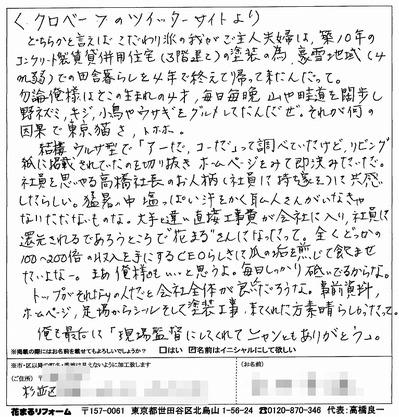 ＜クロベーフのツイッターサイトより
どちらかと言えばこだわり派の我がご主人夫婦は、築10年の
コンクリート製賃貸併用住宅(3階建て)の塗装の為、豪雪地域(4
m弱)での田舎暮らしを4年で終えて帰って来たんだって。
勿論俺様はそこの生まれの4才、毎日毎晩 山や畦道を闊歩し
野ネズミ、キジ、小鳥やウサギをグルメしてたんだぜ。それが何の
因果で東京猫さ、トホホ。
結構ウルサ型で「アーだ、コーだ」って調べていたけど、リビング
紙に掲載されていたのを切り抜き ホームページをみて即決みたいだ。
社員を思いやる高橋社長のお人柄(社員に持ち家を)に共感
したらしい。猛暑の中 塩っぱい汗をかく職人さんがいなきゃ
なりたたないものな。大手と違い直接工事費が会社に入り、社員に
還元されるであろうところで"花まる"さんになったって。全くどっかの
100〜200倍の収入を手にするCEOらしきに爪の垢を煎じて飲ませ
たいよな〜。まあ俺様のもいいと思うよ。毎日しっかり砥いでるからな。
トップがそれなりの人だと会社全体が気持だろうな。事前資料、
ホームページ、足場からシールそして塗装工事、まてくれた方素晴らしかったって。
俺も最后は「現場監督にしてくれてニャンともありがとう。」
※掲載の際にはお名前を載せてもよろしいでしょうか？ □はい ☑名前はイニシャルにして欲しい
※市・区以降の町名・番地は見えないように加工致します
(ご住所) 〒
杉並区
(お名前)
花まるリフォーム 〒157-0061 東京都世田谷区北烏山1-56-24 ☎0120-870-346 代表:高橋良一